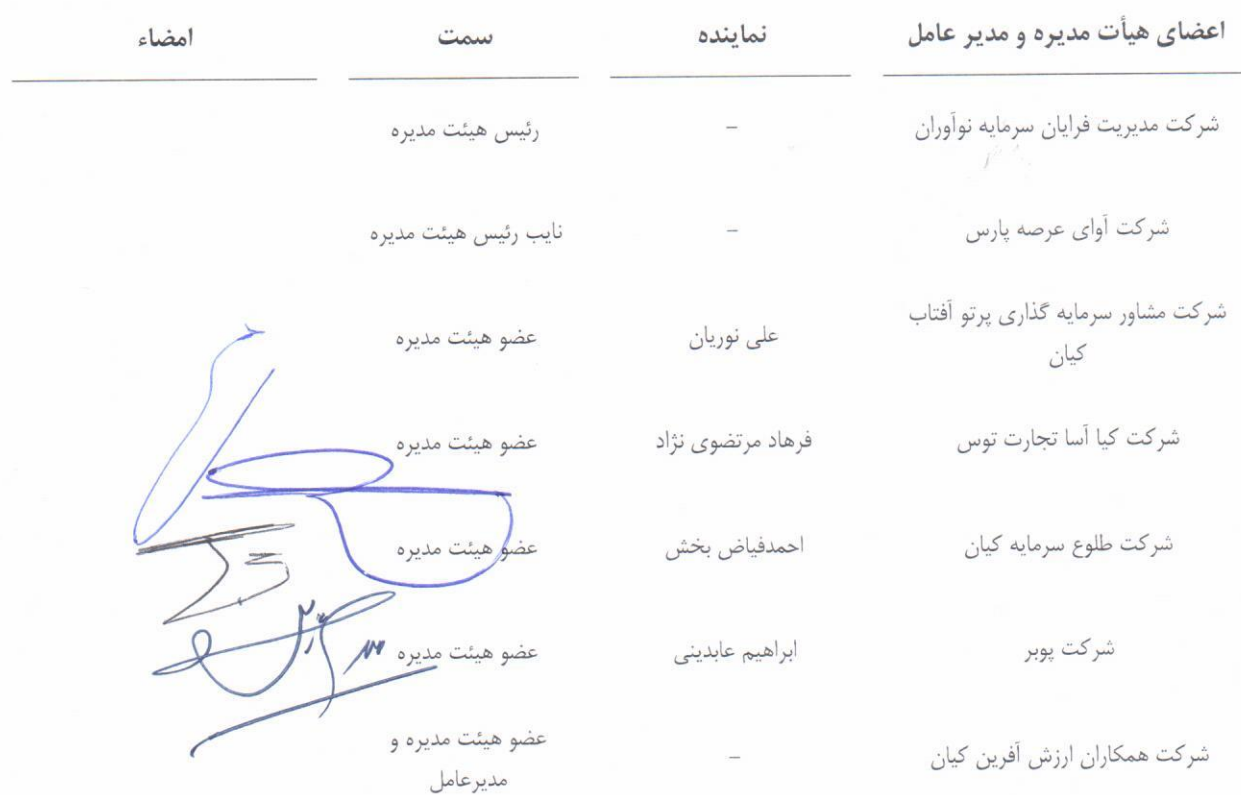 اعضای هیأت مدیره و مدیر عامل نماینده سمت امضاء
شرکت مدیریت فرایان سرمایه نوآوران - رئیس هیئت مدیره
شرکت آوای عرصه پارس - نایب رئیس هیئت مدیره
شرکت مشاور سرمایه گذاری پرتو آفتاب
کیان علی نوریان عضو هیئت مدیره
شرکت کیا آسا تجارت توس فرهاد مرتضوی نژاد عضو هیئت مدیره
شرکت طلوع سرمایه کیان احمدفیاض بخش عضو هیئت مدیره
شرکت پوبر ابراهیم عابدینی عضو هیئت مدیره
شرکت همکاران ارزش آفرین کیان - عضو هیئت مدیره و
مدیرعامل